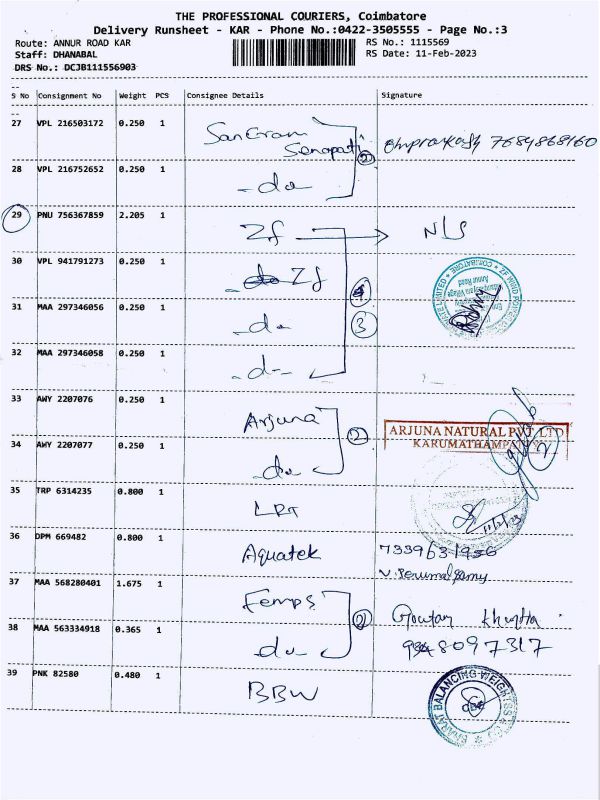 THE PROFESSIONAL COURIERS, Coimbatore
Delivery Runsheet - KAR - Phone No.:0422-3505555 - Page No.:3
Route: ANNUR ROAD KAR
RS No.: 1115569
Staff: DHANABAL
RS Date: 11-Feb-2023
DRS No.: DCJB111556903
S No Consignment No Weight PCS Consignee Details Signature
27 VPL 216503172 0.250 1 SanGram Senapati
2 7684868160
28 VPL 216752652 0.250 1 -do
29 PNU 756367859 2.205 1 Zf NLS
30 VPL 941791273 0.250 1 Zf
31 MAA 297346056 0.250 1 -do- 3
32 MAA 297346058 0.250 1 -do-
33 AWY 2207076 0.250 1 Arjuna 2
ARJUNA NATURAL PVT. LTD
KARUMATHAMPATTY
34 AWY 2207077 0.250 1 -do 2
35 TRP 6314235 0.800 1 LRT
11/2/23
36 DPM 669482 0.800 1 Aquatek 7339631956
V. Perumal Samy
37 MAA 568280401 1.675 1 Femps 2
38 MAA 563334918 0.365 1 -do- 9348097317
39 PNK 82580 0.480 1 BBW
BHARAT BALANCING WEIGHTSS